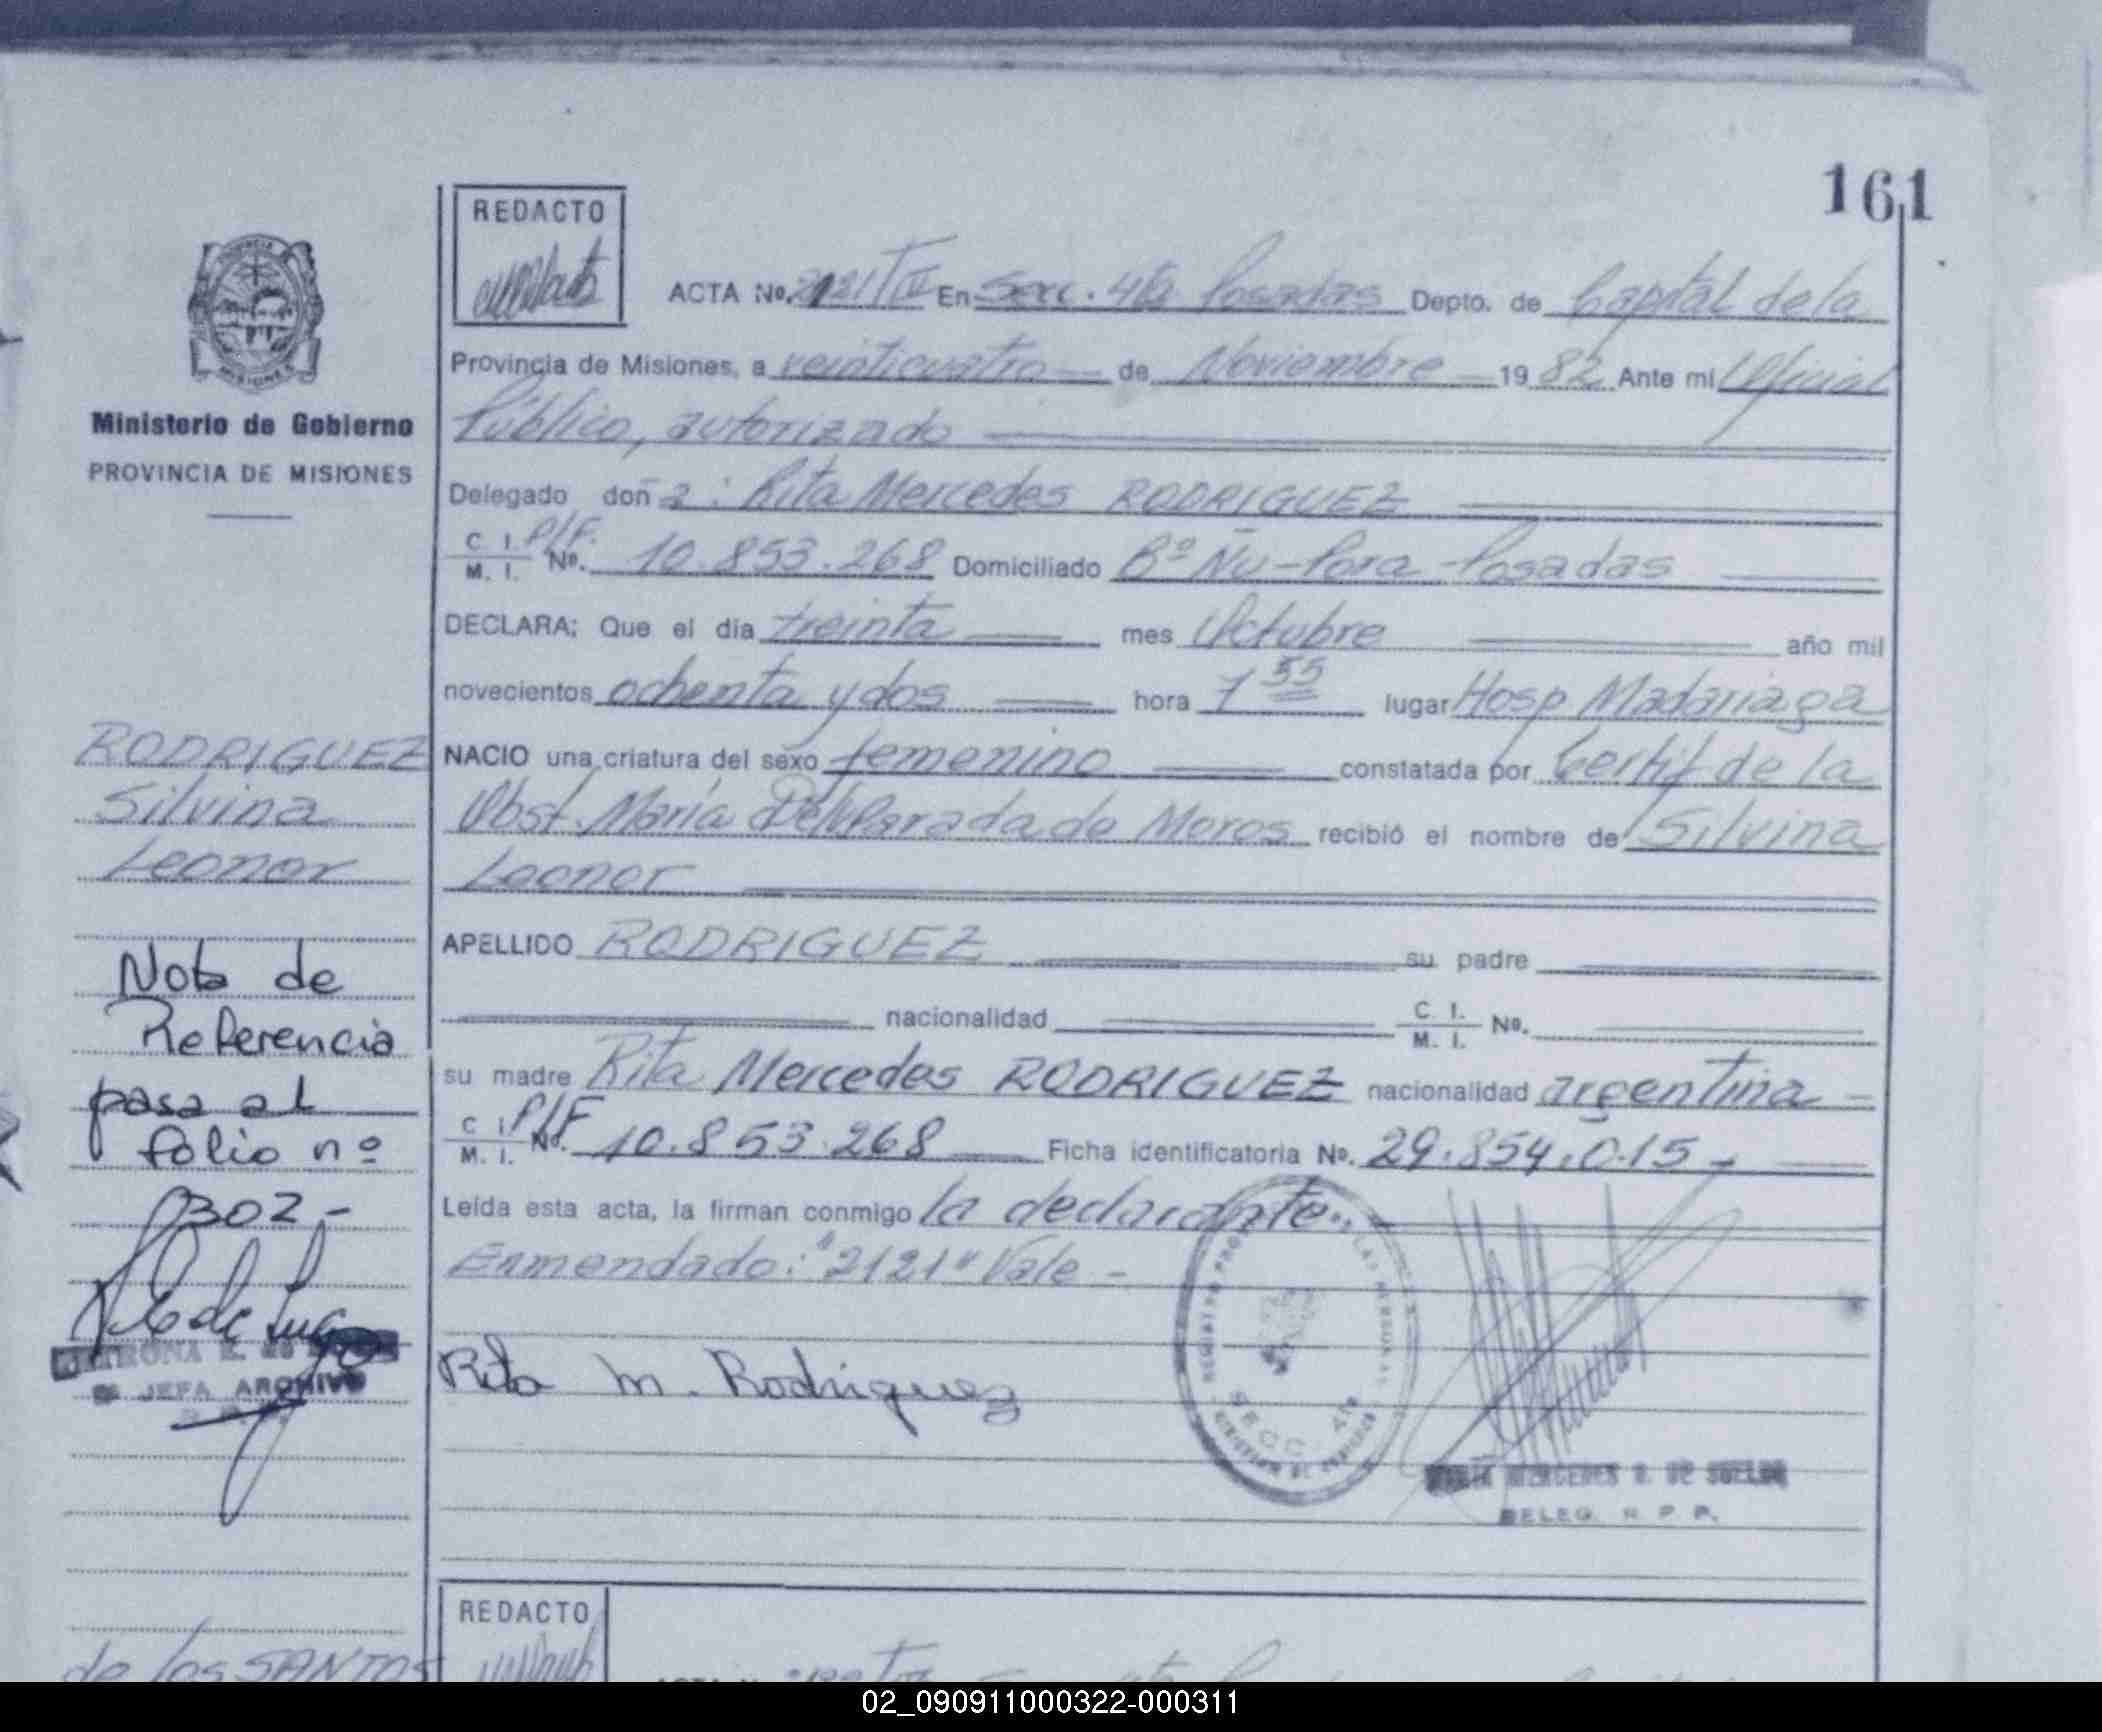 161
REDACTO
ACTA Nº. 2121 T II En Secc. 4ta Posadas Depto. de Capital de la
Provincia de Misiones, a veinticuatro de Noviembre 19 82 Ante mi Oficial
Público, autorizado
Delegado doñ a : Rita Mercedes RODRIGUEZ
C. I. P/F.
M. I. Nº. 10.853.268 Domiciliado Bº Ñu-Pora Posadas
DECLARA: Que el dia treinta mes Octubre año mil
novecientos ochenta y dos hora 7 55 lugar Hosp Madariaga
NACIO una criatura del sexo femenino constatada por Certif de la
Obst. María de Moros recibió el nombre de Silvina
Leonor
APELLIDO RODRIGUEZ su padre
nacionalidad C. I. M. I. Nº.
su madre Rita Mercedes RODRIGUEZ nacionalidad argentina
C. I. P/F
M. I. Nº. 10.853.268 Ficha identificatoria Nº. 29.854.015
Leida esta acta, la firman conmigo la declarante.,
Enmendado: "2121" Vale -
Rita M. Rodriguez
SECC. 4ta
DELEG. R. P. P.
MISIONES
Ministerio de Gobierno
PROVINCIA DE MISIONES
RODRIGUEZ
Silvina
Leonor
Nota de
Referencia
pasa al
folio nº
0302.-
JEFA ARCHIVO
REDACTO
de los SANTOS
02_090911000322-000311